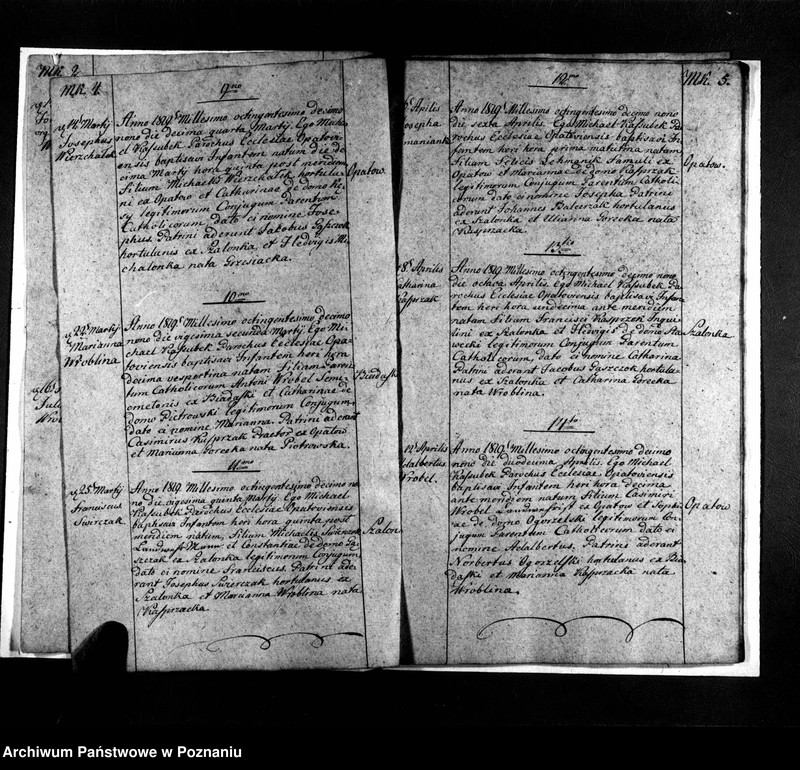 Mk. 2
Mk. 4.
9no
14 Martij
Josephus
Wierzchałek
Anno 1819. Millesimo octingentesimo decimo
nono die decima quarta Martij Ego Michael
Kaſsubek Parochus Ecclesiae Opatovi-
ensis baptisavi Infantem natum die de-
cima Martij hora quinta post meridiem
Filium Michaelis Wierzchałek hortula-
ni ex Opatow et Catharinae de domo
legitimorum Conjugum Parentum
Catholicorum, dato ei nomine Jose-
phus. Patrini aderant Jakobus
hortulanus ex Szalonka et Hedvigis Mi-
chalonka nata Grzesiacka.
Opatow.
10mo
22 Martij
Marianna
Wroblina
Anno 1819. Millesimo octingentesimo decimo
nono die vigesima secunda Martij Ego Mi-
chael Kaſsubek Parochus Ecclesiae Opa-
toviensis baptisavi Infantem heri hora
decima vespertina natam Filiam Paren-
tum Catholicorum Antoni Wrobel Seme-
ometonis ex Biadaſki et Catharinae de
domo Piotrowski legitimorum Conjugum,
dato ei nomine Marianna. Patrini aderant
Casimirus Kasprzak Praetor ex Opatow
et Marianna Gorecka nata Piotrowska.
Biadaſki
11mo
25 Martij
Franciscus
Swierczak
Anno 1819 Millesimo octingentesimo decimo no-
no die vigesima quinta Martij. Ego Michael
Kaſsubek Parochus Ecclesiae Opatoviensis
baptisavi Infantem heri hora quinta post
meridiem natum, Filium Michaelis Swierczak
et Constantiae de domo
ex Szalonka legitimorum Conjugum
dato ei nomine Franciscus. Patrini ade-
rant Josephus Swierczak hortulanus ex
Szalonka et Marianna Wroblina nata
Kasprzacka
Szalon
12mo
Mk. 5.
Aprilis
Josepha
Anno 1819. Millesimo octingentesimo decimo nono
die sexta Aprilis. Ego Michael Kaſsubek Pa-
rochus Ecclesiae Opatoviensis baptisavi In-
fantem heri hora prima matutina natam
Filiam Felicis Lehmanik Famuli ex
Opatow et Mariannae de domo Kasprzak
legitimorum Conjugum Parentum Catholi-
corum dato ei nomine Josepha Patrini
aderant Johannes Balcerzak hortulanus
ex Szalonka et Ulianna Gorecka nata
Kasprzacka.
Opatow.
13tio
8 Aprilis
Catharina
Kasprzak
Anno 1819. Millesimo octingentesimo decimo nono
die octava Aprilis. Ego Michael Kaſsubek Pa-
rochus Ecclesiae Opatoviensis baptisavi Infan-
tem heri hora undecima ante meridiem
natam Filiam Francisci Kasprzek Inqui-
lini ex Szalonka et Hedvigis de domo
legitimorum Conjugum Parentum
Catholicorum, dato ei nomine Catharina
Patrini aderant Jacobus Paszczok hortula-
nus ex Szalonka et Catharina Gorecka
nata Wroblina.
Szalonka
14to
12 Aprilis
Adalbertus
Wrobel.
Anno 1819. Millesimo octingentesimo decimo
nono die duodecima Aprilis. Ego Michael
Kaſsubek Parochus Ecclesiae Opatoviensis
baptisavi Infantem heri hora decima
ante meridiem natum Filium Casimiri
Wrobel ex Opatow et Sophi-
ae de domo Ogorzelski legitimorum Con-
jugum Parentum Catholicorum dato ei
nomine Adalbertus. Patrini aderant
Norbertus Ogorzelski hortulanus ex Bia-
daſki et Marianna Kasprzacka nata
Wroblina.
Opatow
Archiwum Państwowe w Poznaniu